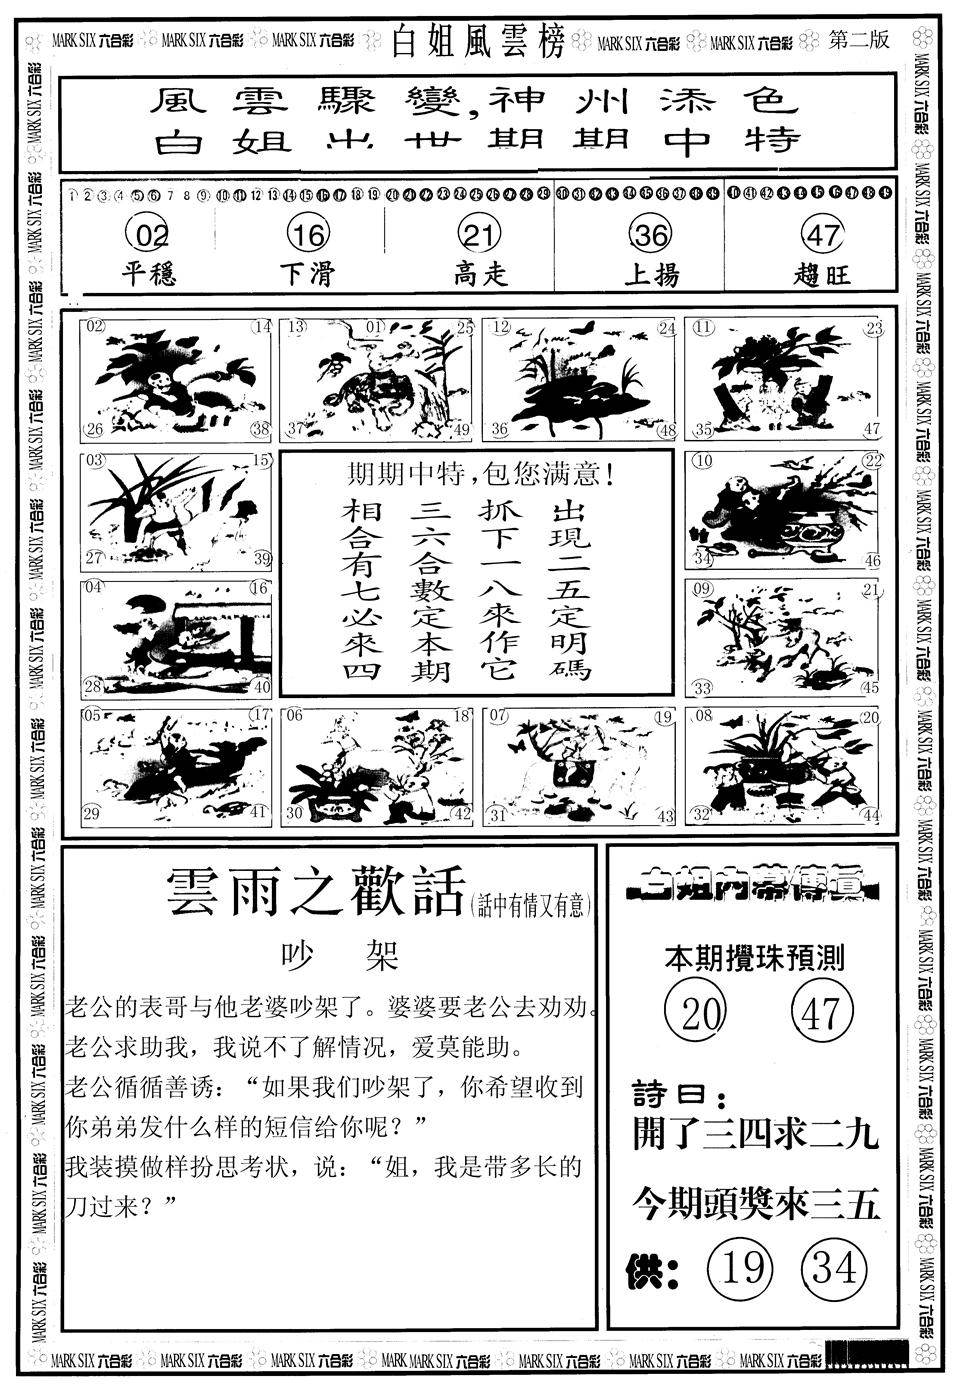 MARK SIX 六合彩 MARK SIX 六合彩 MARK SIX 六合彩 白姐風雲榜 MARK SIX 六合彩 MARK SIX 六合彩 第二版
風雲驟變,神州添色
白姐出世期期中特
1 2 3 4 5 6 7 8 9 10 11 12 13 14 15 16 17 18 19 20 21 22 23 24 25 26 27 28 29 30 31 32 33 34 35 36 37 38 39 40 41 42 43 44 45 46 47 48 49
02 16 21 36 47
平穩 下滑 高走 上揚 趨旺
02 14 13 01 25 12 24 11 23
26 38 37 49 36 48 35 47
03 15 10 22
27 39 34 46
04 16 09 21
28 40 33 45
05 17 06 18 07 19 08 20
29 41 30 42 31 43 32 44
期期中特,包您满意!
出現二五定明碼
抓下一八來作它
三六合數定本期
相合有七必來四
雲雨之歡話(話中有情又有意)
吵 架
老公的表哥与他老婆吵架了。婆婆要老公去劝劝。
老公求助我，我说不了解情况，爱莫能助。
老公循循善诱：“如果我们吵架了，你希望收到
你弟弟发什么样的短信给你呢？”
我装摸做样扮思考状，说：“姐，我是带多长的
刀过来？”
白姐内幕傳真
本期攪珠預測
20 47
詩曰:
開了三四求二九
今期頭獎來三五
供: 19 34
MARK SIX 六合彩 MARK SIX 六合彩 MARK SIX 六合彩 MARK MARK SIX 六合彩 MARK SIX 六合彩 MARK SIX 六合彩 MARK SIX 六合彩